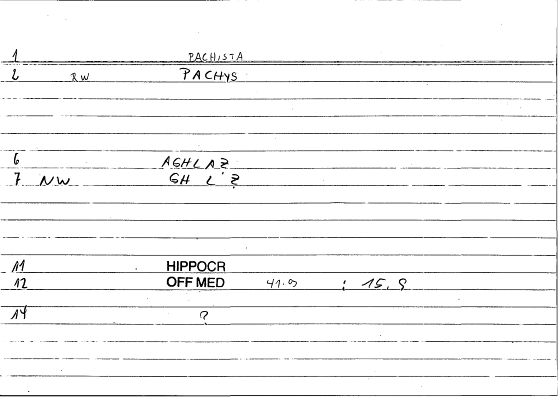 1 PACHISTA
2 RW PACHYS
6 AGHLAZ
7 NW GH L'Z
11 HIPPOCR
12 OFF MED 41.9 : 15.9
14 ?